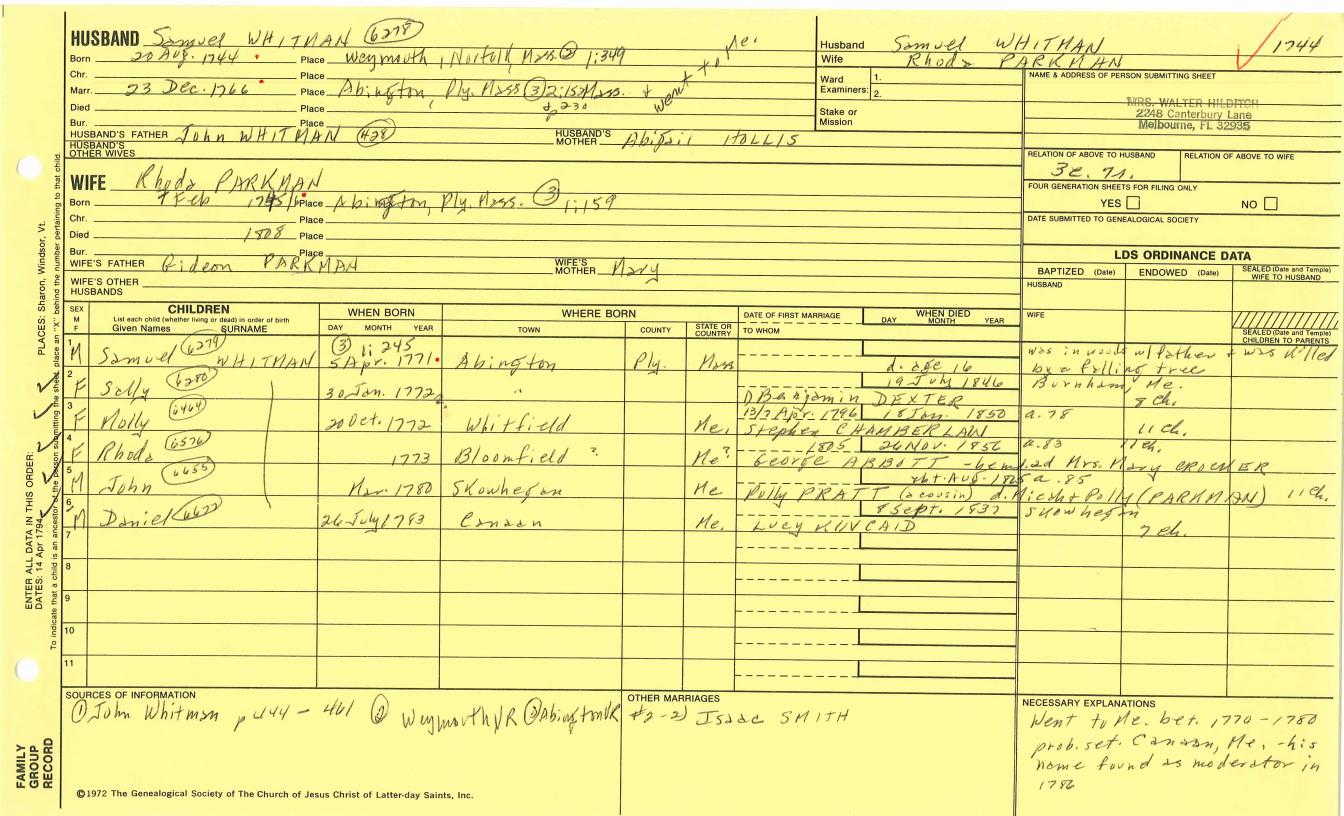 HUSBAND Samuel WHITMAN 6278
Born 20 Aug. 1744 Place Weymouth, Norfolk, Mass. ② 1:349
Chr. Place
Marr. 23 Dec. 1766 Place Abington, Ply. Mass ③ 2:152 Mass. + went to Me.
Died Place p 230
Bur. Place
HUSBAND'S FATHER John WHITMAN 428 HUSBAND'S MOTHER Abigail HOLLIS
HUSBAND'S OTHER WIVES
WIFE Rhoda PARKMAN
Born 7 Feb 1745/ Place Abington, Ply. Mass. ③ 1:159
Chr. Place
Died 1808 Place
Bur. Place
WIFE'S FATHER Gideon PARKMAN WIFE'S MOTHER Mary
WIFE'S OTHER HUSBANDS
Husband Samuel WHITMAN 1744
Wife Rhoda PARKMAN
Ward Examiners: 1.
2.
Stake or Mission
NAME & ADDRESS OF PERSON SUBMITTING SHEET
MRS. WALTER HILDITCH
2248 Canterbury Lane
Melbourne, FL 32935
RELATION OF ABOVE TO HUSBAND RELATION OF ABOVE TO WIFE
3c. 7r.
FOUR GENERATION SHEETS FOR FILING ONLY
YES NO
DATE SUBMITTED TO GENEALOGICAL SOCIETY
LDS ORDINANCE DATA
BAPTIZED (Date) ENDOWED (Date) SEALED (Date and Temple) WIFE TO HUSBAND
HUSBAND
WIFE
SEALED (Date and Temple) CHILDREN TO PARENTS
SEX M F
CHILDREN
List each child (whether living or dead) in order of birth
Given Names SURNAME
WHEN BORN
DAY MONTH YEAR
WHERE BORN
TOWN COUNTY STATE OR COUNTRY
DATE OF FIRST MARRIAGE
TO WHOM
WHEN DIED
DAY MONTH YEAR
③ 1: 245
1 M Samuel 6279 WHITMAN 5 Apr. 1771 Abington Ply. Mass d. age 16 was in woods w/father + was killed by a falling tree
2 F Sally 6280 30 Jan. 1772 " 19 July 1846 Burnham, Me.
Benjamin DEXTER 8 ch.
3 F Molly 6464 20 Oct. 1772 Whitfield Me. 13/7 Apr. 1796 18 Jan. 1850 a. 78
Stephen CHAMBERLAIN 11 ch.
4 F Rhoda 6576 1773 Bloomfield ? Me? 1805 26 Nov. 1856 a. 83 11 ch.
George ABBOTT - he md. 2d Mrs. Mary CROCKER
5 M John 6655 Mar. 1780 Skowhegan Me abt Aug. 1865 a. 85
Polly PRATT (a cousin) d. Micah + Polly (PARKMAN) 11 ch.
6 M Daniel 6677 26 July 1783 Canaan Me. 8 Sept. 1837 Skowhegan
Lucy KINCAID 7 ch.
7
8
9
10
11
SOURCES OF INFORMATION
① John Whitman p 444 - 461 ② Weymouth VR ③ Abington VR
OTHER MARRIAGES
#2-2) Isaac SMITH
NECESSARY EXPLANATIONS
Went to Me. bet. 1770 - 1780
prob. set. Canaan, Me. - his
name found as moderator in
1786
©1972 The Genealogical Society of The Church of Jesus Christ of Latter-day Saints, Inc.
FAMILY GROUP RECORD
ENTER ALL DATA IN THIS ORDER:
DATES: 14 Apr 1794 PLACES: Sharon, Windsor, Vt.
To indicate that a child is an ancestor of the person submitting the sheet, place an "X" behind the number pertaining to that child.